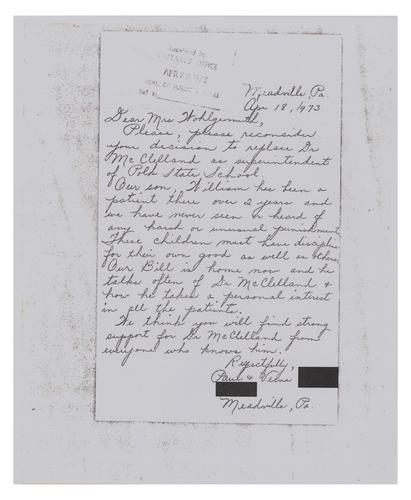 Received in
OFFICE
APR 20 1973
Meadville, Pa.
Apr 18, 1973
Dear Mrs Wohlgemuth,
Please, please reconsider
your decision to replace Dr
McClelland as superintendent
of Polk State School.
Our son, William has been a
patient there over 2 years and
we have never seen or heard of
any harsh or unusual punishment
These children must have discipline
for their own good as well as others
Our Bill is home now and he
talks often of Dr McClelland &
how he takes a personal interest
in all the patients.
We think you will find strong
support for Dr McClelland from
everyone who knows him.
Respectfully,
Paul & Velma
Meadville, Pa.